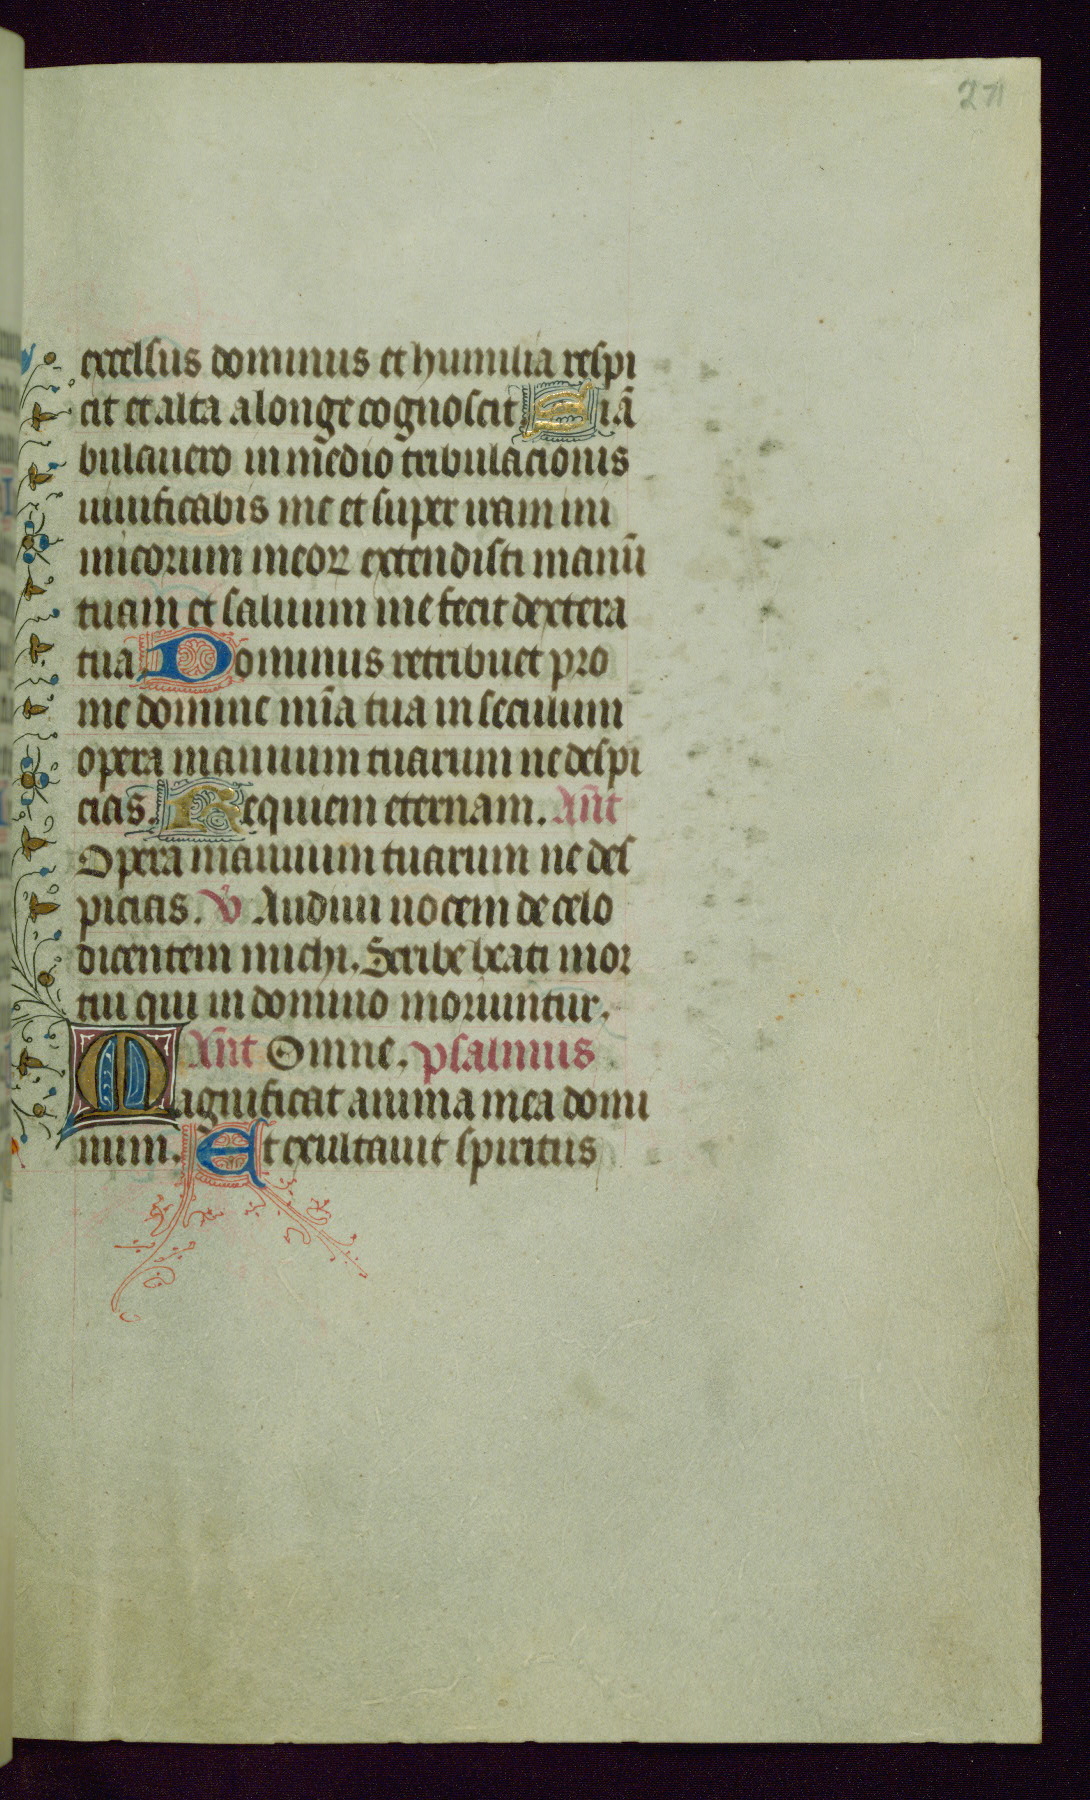 271
excelsus dominus et humilia respi
cit et alta a longe cognoscit Si ā
bulauero in medio tribulacionis
uiuificabis me et super iram ini
micorum meoꝝ extendisti manū
tuam et saluum me fecit dextera
tua Dominus retribuet pro
me domine mīa tua in seculum
opera manuum tuarum ne despi
cias. Requiem eternam. Añt
Opera manuum tuarum ne des
picias. V Audiui uocem de celo
dicentem michi. Scribe beati mor
tui qui in domino moriuntur.
Añt Omne. psalmus
Magnificat anima mea domi
num. Et exultauit spiritus